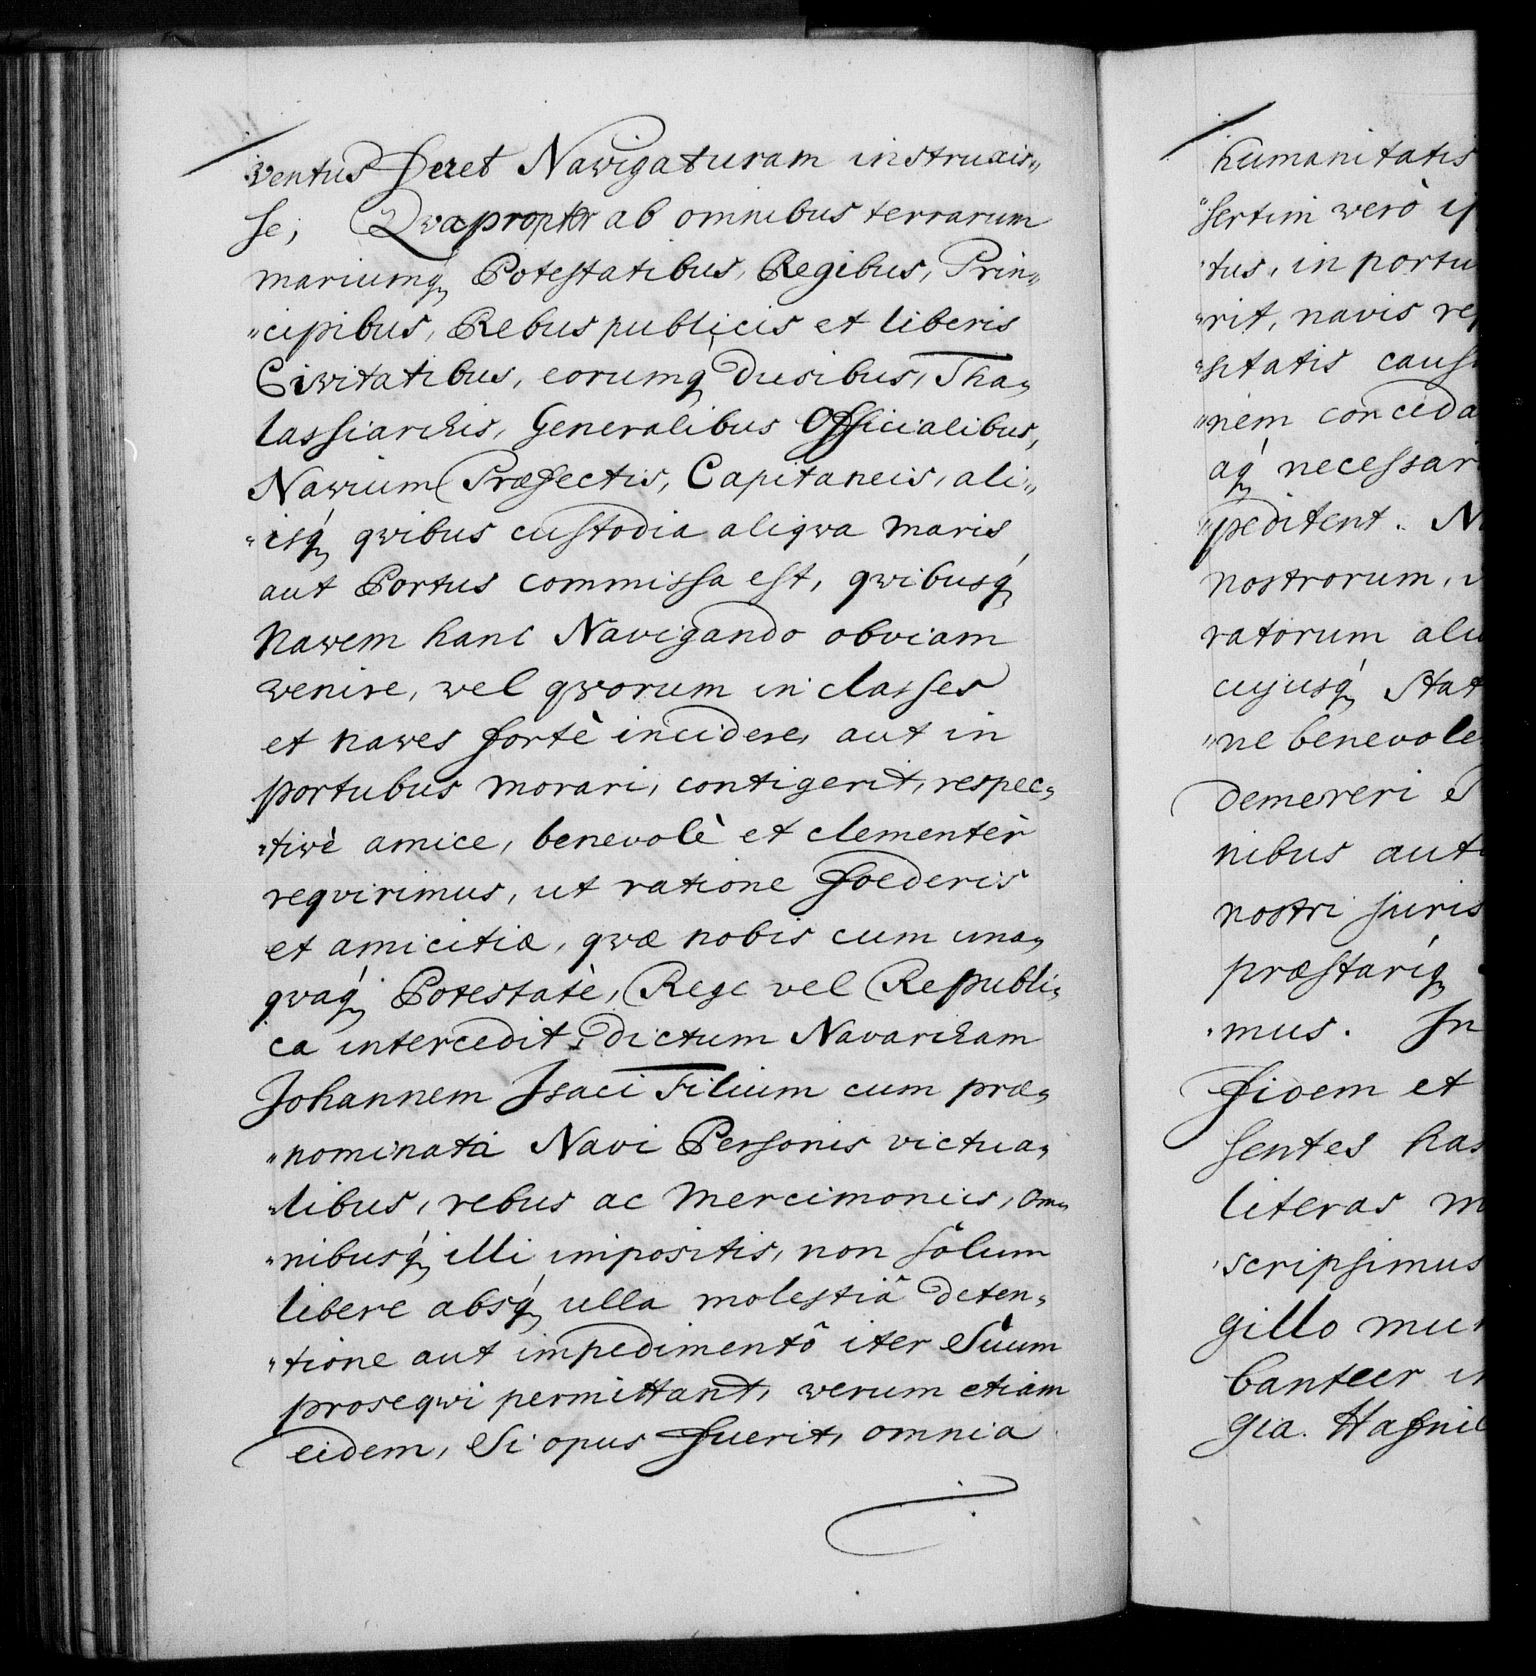 ventus feret Nawigaturam instruxis„
se; Qvapropter ab omnibus terrarum
mariumq́ Potestatibus, Regibus, Prin„
„cipibus, Rebus publicis et liberis
Civitatibus, eorumq́ Ducibus, Tha„
lassiarchis, Generalibus Officialibus,
Nawium Præfectis, Capitaneis, ali„
„isq́ qvibus custodia aliqva maris
aut Portus commissa est, qvibusq́
Nawem hanc Navigando obviam
wenire, wel qvorum in classes
et nawes fortè incidere, aut in
portubus morari, contigerit, respec„
„tivè amice, benevolè et clementèr
reqvirimus, ut ratione foederis
et amicitiæ, qvæ nobis cum una„
qvaq́ Potestatè, Rege vel Republi„
ca intercedit, dictum Navarcham
Johannem Isaci Filium cum præ„
„nominata Navi Personis victua„
„libus, rebus ac Mercimoniis, om„
„nibusq́ illi impositis, non sôlum
libere absq́ ulla molestiâ deten„
„tione aut impedimentô iter Suum
proseqwi permittant, werum etiam
eidem, Si opus fuerit, omnia
humanitatis
„sertim werò
„tus, in portu
„rit, navis
„sitatis
„nem conceda
aq́ necessar
„peditent.
nostrorum,
ratorum
cujusq́
„ne
demereri
nibus
nostri juris
præstariq́
„mus. In
fidem et
sentes has
literas
scripsimus
gillo